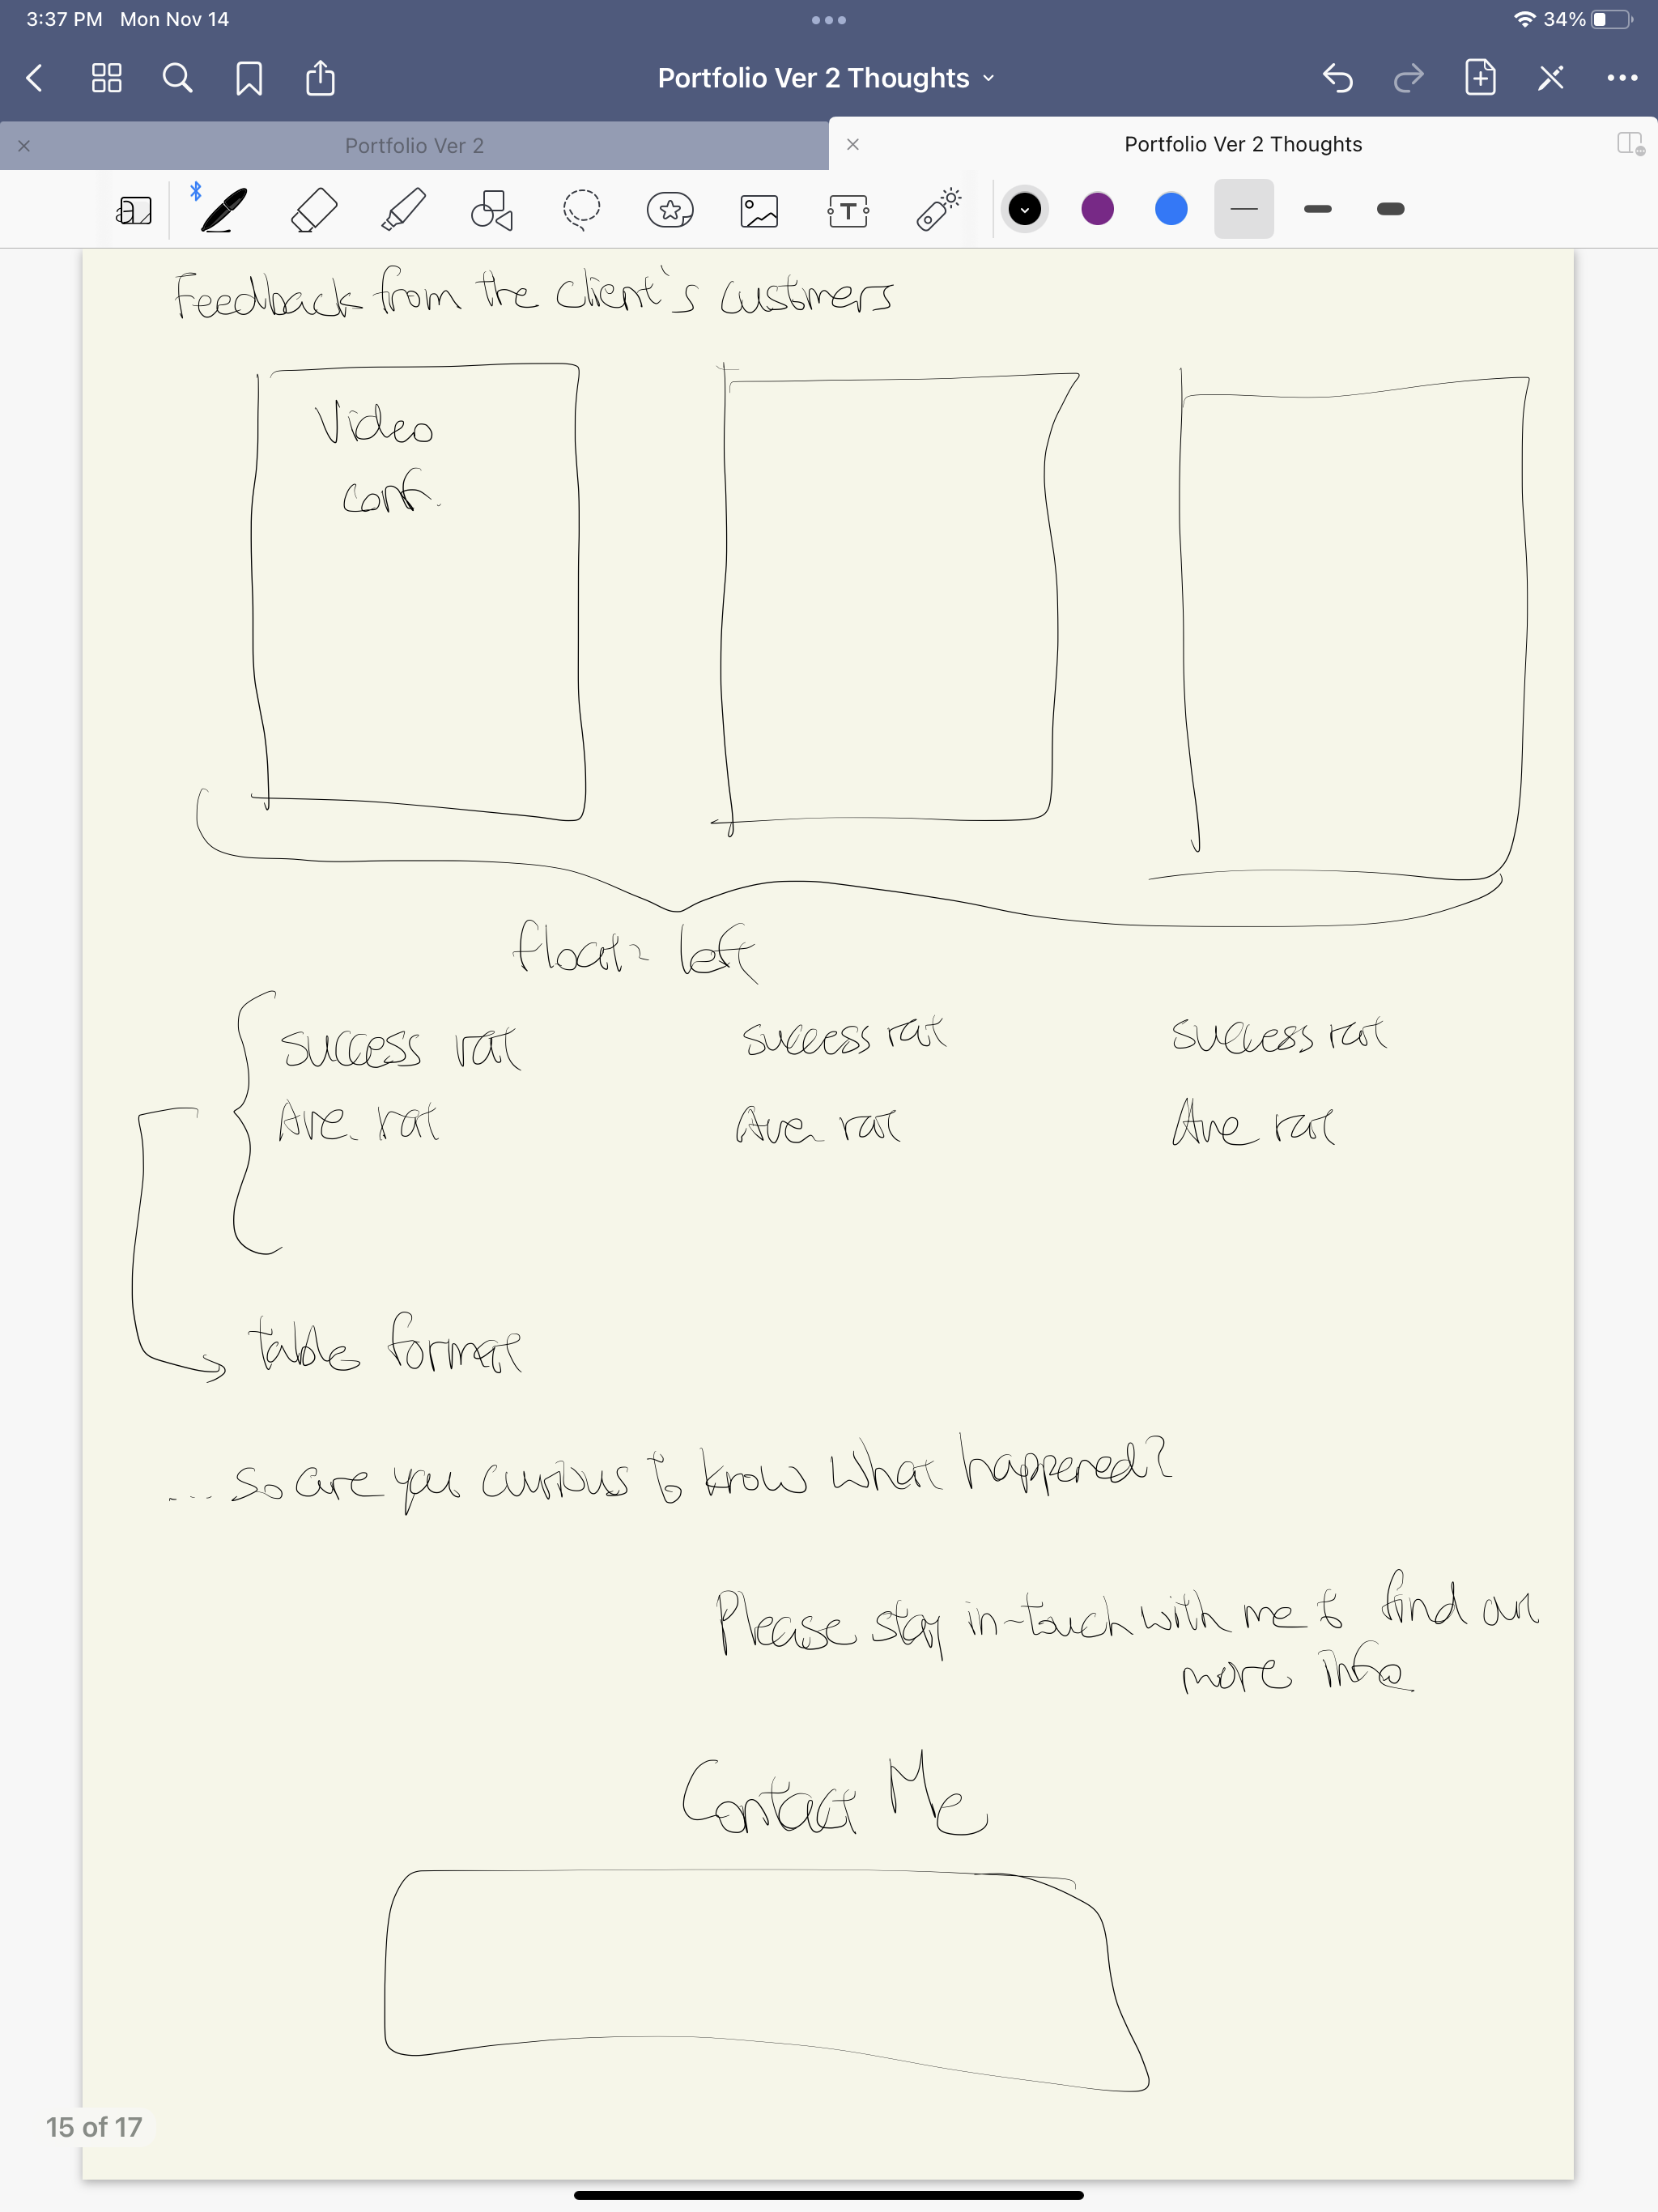 3:37 PM Mon Nov 14
34%
Portfolio Ver 2 Thoughts
Portfolio Ver 2
Portfolio Ver 2 Thoughts
T
Feedback from the client's custimers
Video
conf.
float: left
success rat success rat success rat
Ave. rat Ave rat Ave rat
table format
... so are you curious to know what happened?
Please stay in-touch with me to find out
more info
Contact Me
15 of 17